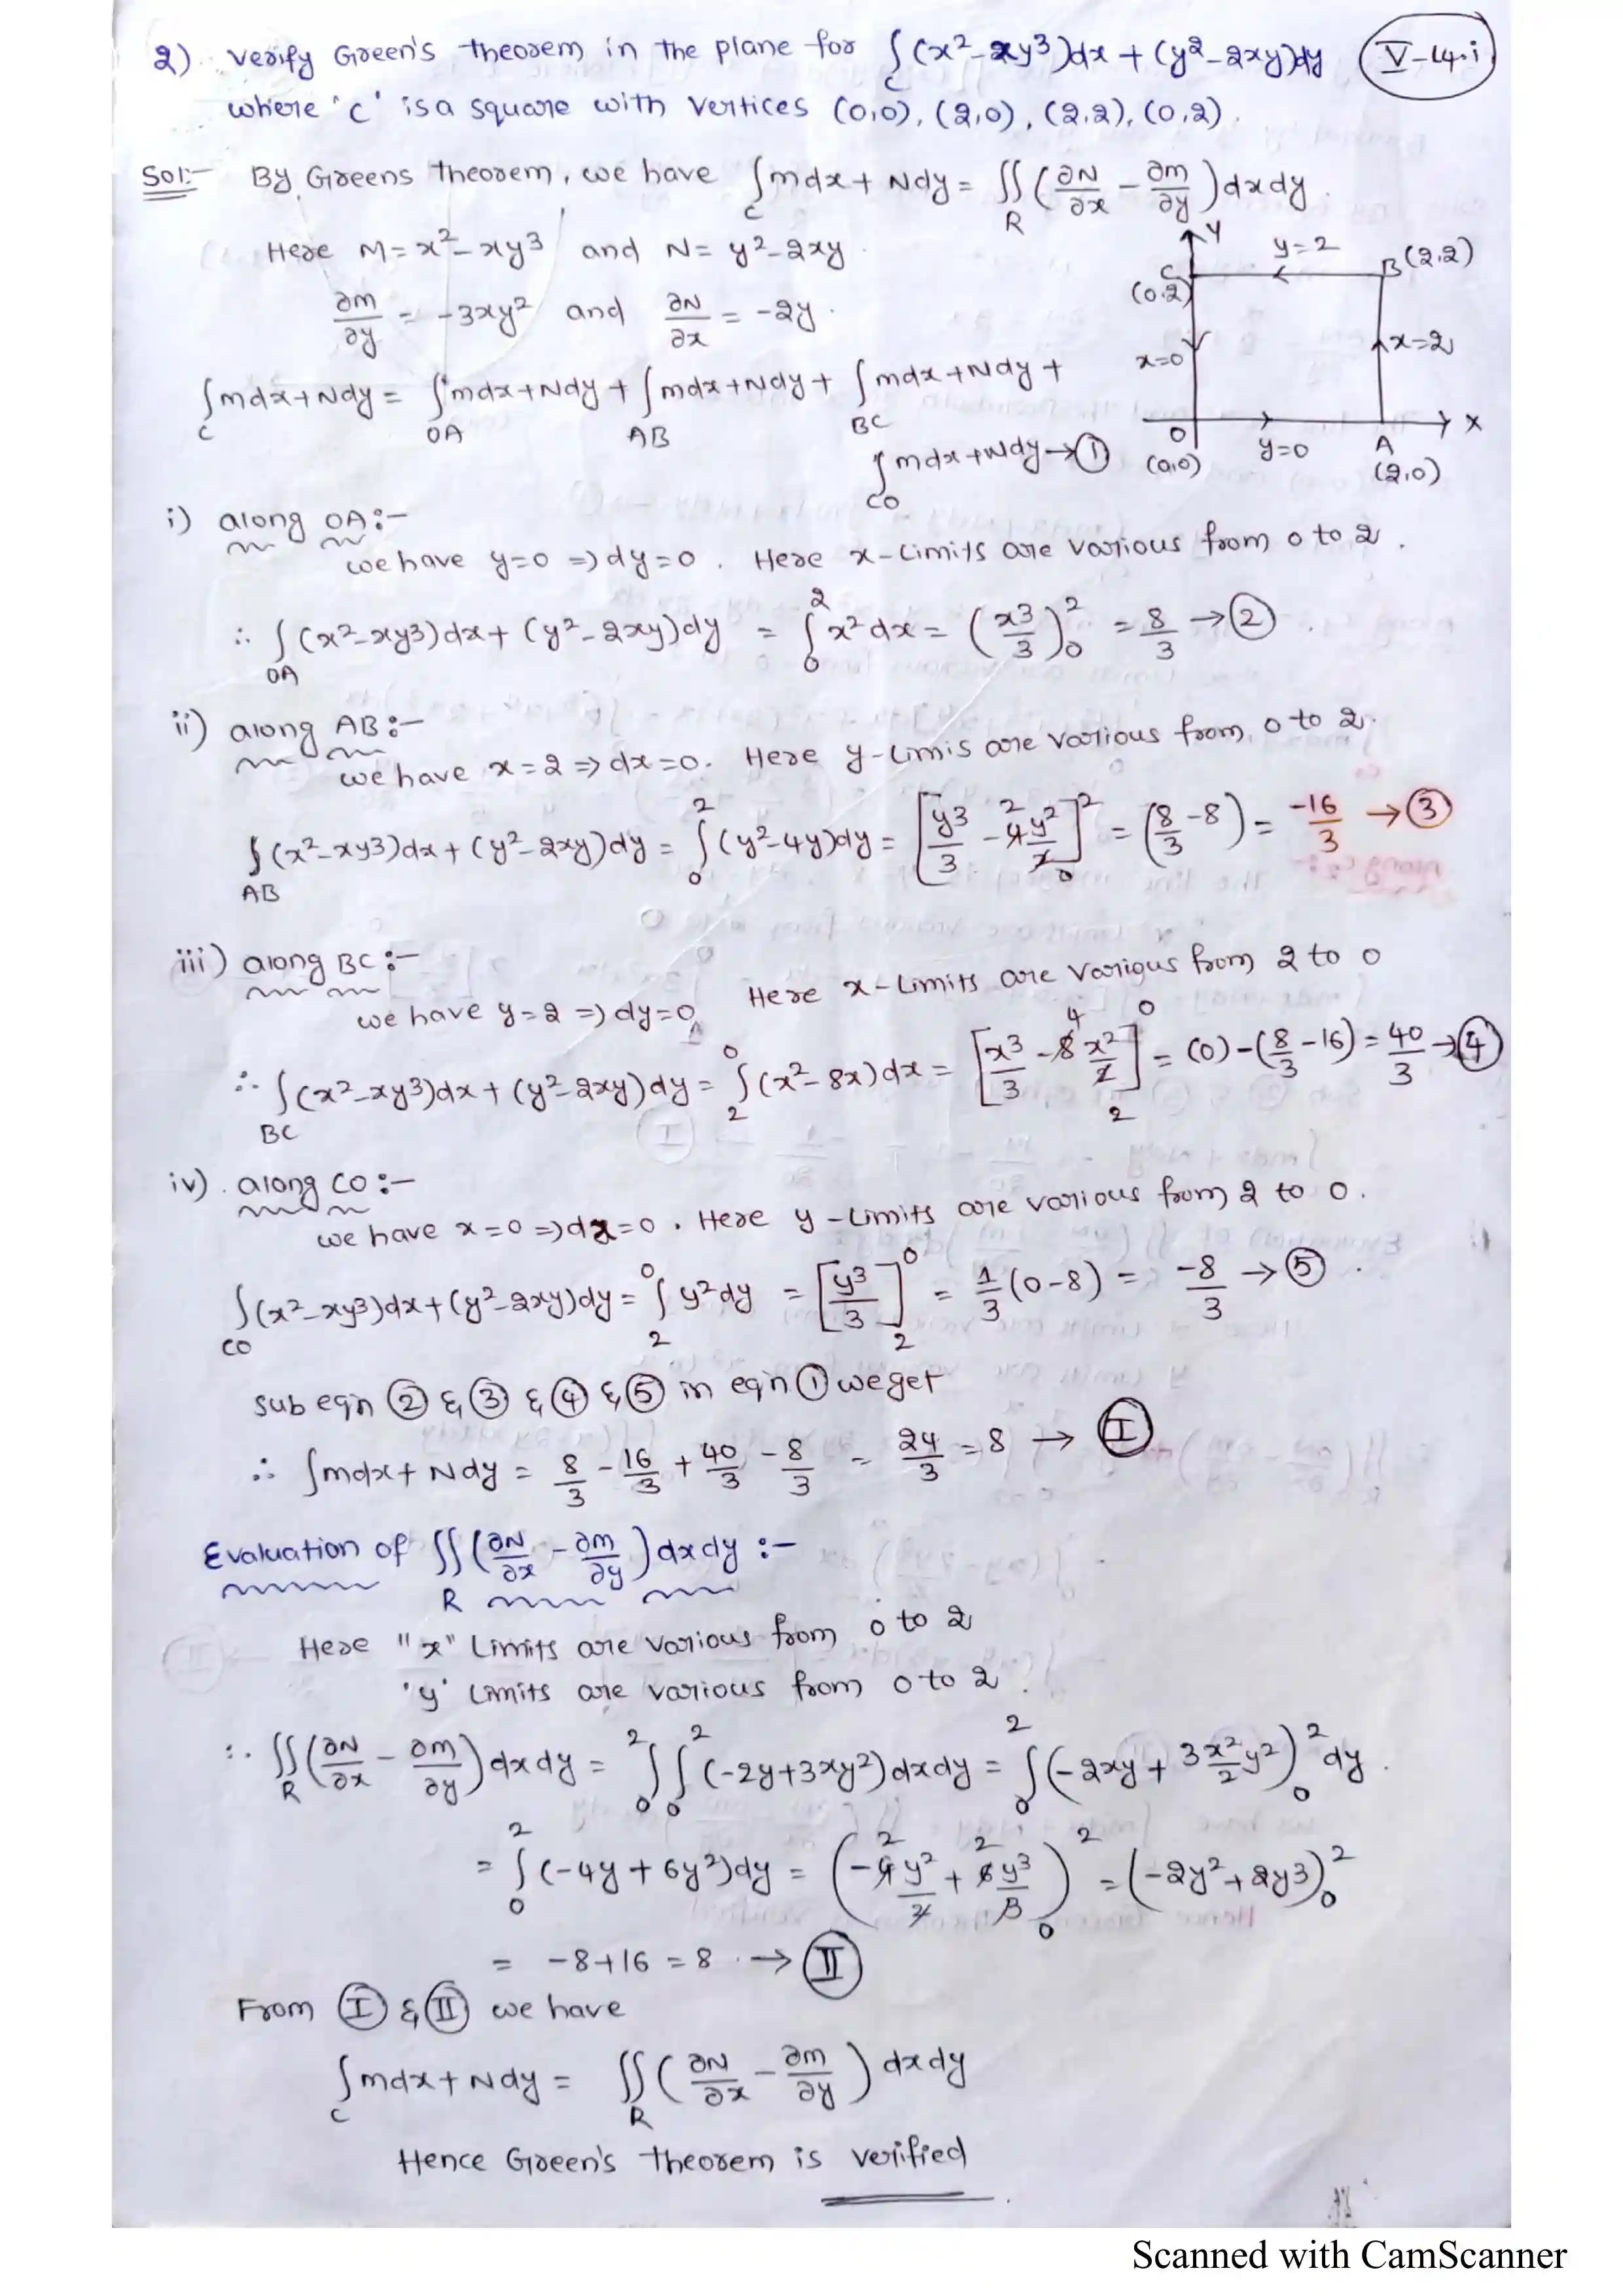 2) Verify Green's theorem in the plane for ∫_C (x²-xy³)dx + (y²-2xy)dy (V-4.i)
where 'C' is a square with vertices (0,0), (2,0), (2,2), (0,2).
Sol:- By Greens theorem, we have ∫_C mdx + Ndy = ∬_R (∂N/∂x - ∂m/∂y) dxdy.
Here M = x² - xy³ and N = y² - 2xy
∂m/∂y = -3xy² and ∂N/∂x = -2y.
Y
y=2
B(2,2)
C
(0,2)
x=0
x=2
O
(0,0)
y=0
A
(2,0)
X
∫_C mdx+Ndy = ∫_OA mdx+Ndy + ∫_AB mdx+Ndy + ∫_BC mdx+Ndy +
∫_CO mdx+Ndy → ①
i) along OA:-
we have y=0 ⇒ dy=0. Here x-Limits are various from 0 to 2.
∴ ∫_OA (x²-xy³)dx + (y²-2xy)dy = ∫_0^2 x²dx = (x³/3)_0^2 = 8/3 → ②.
ii) along AB:-
we have x=2 ⇒ dx=0. Here y-Limis are various from 0 to 2.
∫_AB (x²-xy³)dx + (y²-2xy)dy = ∫_0^2 (y²-4y)dy = [y³/3 - 4y²/2]_0^2 = (8/3 - 8) = -16/3 → ③
iii) along BC:-
we have y=2 ⇒ dy=0 Here x-Limits are various from 2 to 0
∴ ∫_BC (x²-xy³)dx + (y²-2xy)dy = ∫_2^0 (x²-8x)dx = [x³/3 - 8x²/2]_2^0 = (0)-(8/3-16) = 40/3 → ④
iv). along CO:-
we have x=0 ⇒ dx=0. Here y-Limits are various from 2 to 0.
∫_CO (x²-xy³)dx+(y²-2xy)dy = ∫_2^0 y²dy = [y³/3]_2^0 = 1/3(0-8) = -8/3 → ⑤.
sub eqn ② & ③ & ④ & ⑤ in eqn ① we get
∴ ∫mdx+Ndy = 8/3 - 16/3 + 40/3 - 8/3 = 24/3 = 8 → (I)
Evaluation of ∬_R (∂N/∂x - ∂m/∂y)dxdy:-
Here "x" Limits are various from 0 to 2
'y' Limits are various from 0 to 2.
∴ ∬_R (∂N/∂x - ∂m/∂y)dxdy = ∫_0^2 ∫_0^2 (-2y+3xy²)dxdy = ∫_0^2 (-2xy + 3x²/2 y²)_0^2 dy.
= ∫_0^2 (-4y+6y²)dy = (-4y²/2 + 6y³/3)_0^2 = (-2y²+2y³)_0^2
= -8+16 = 8 → (II)
From (I) & (II) we have
∫_C mdx+Ndy = ∬_R (∂N/∂x - ∂m/∂y) dxdy
Hence Green's theorem is verified
Scanned with CamScanner